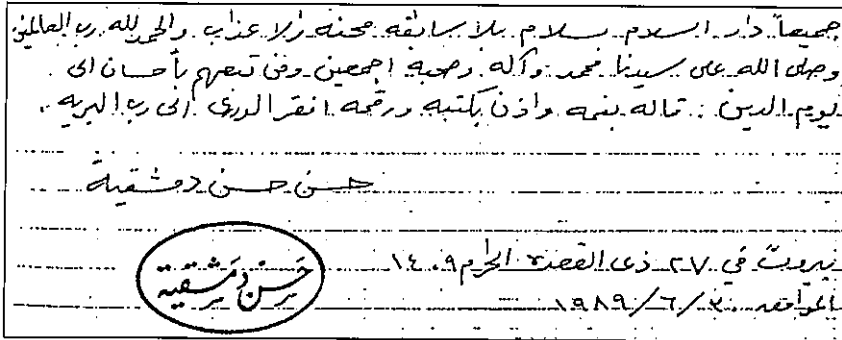 جميعاً دار السلام بسلام بلا سابقه محنه ولا عذاب والحمد لله رب العالمين
وصلى الله على سيدنا محمد وآله وصحبه اجمعين ومن تبعهم بأحسان الى
يوم الدين . قاله بفمه واذن بكتبه ورقمه افقر الورى الى رب البريه .
حسن حسن دمشقية
بيروت في ٢٧ ذي القعده الحرام ١٤٠٩
الموافق ٣٠/٦/١٩٨٩
حسن دمشقية